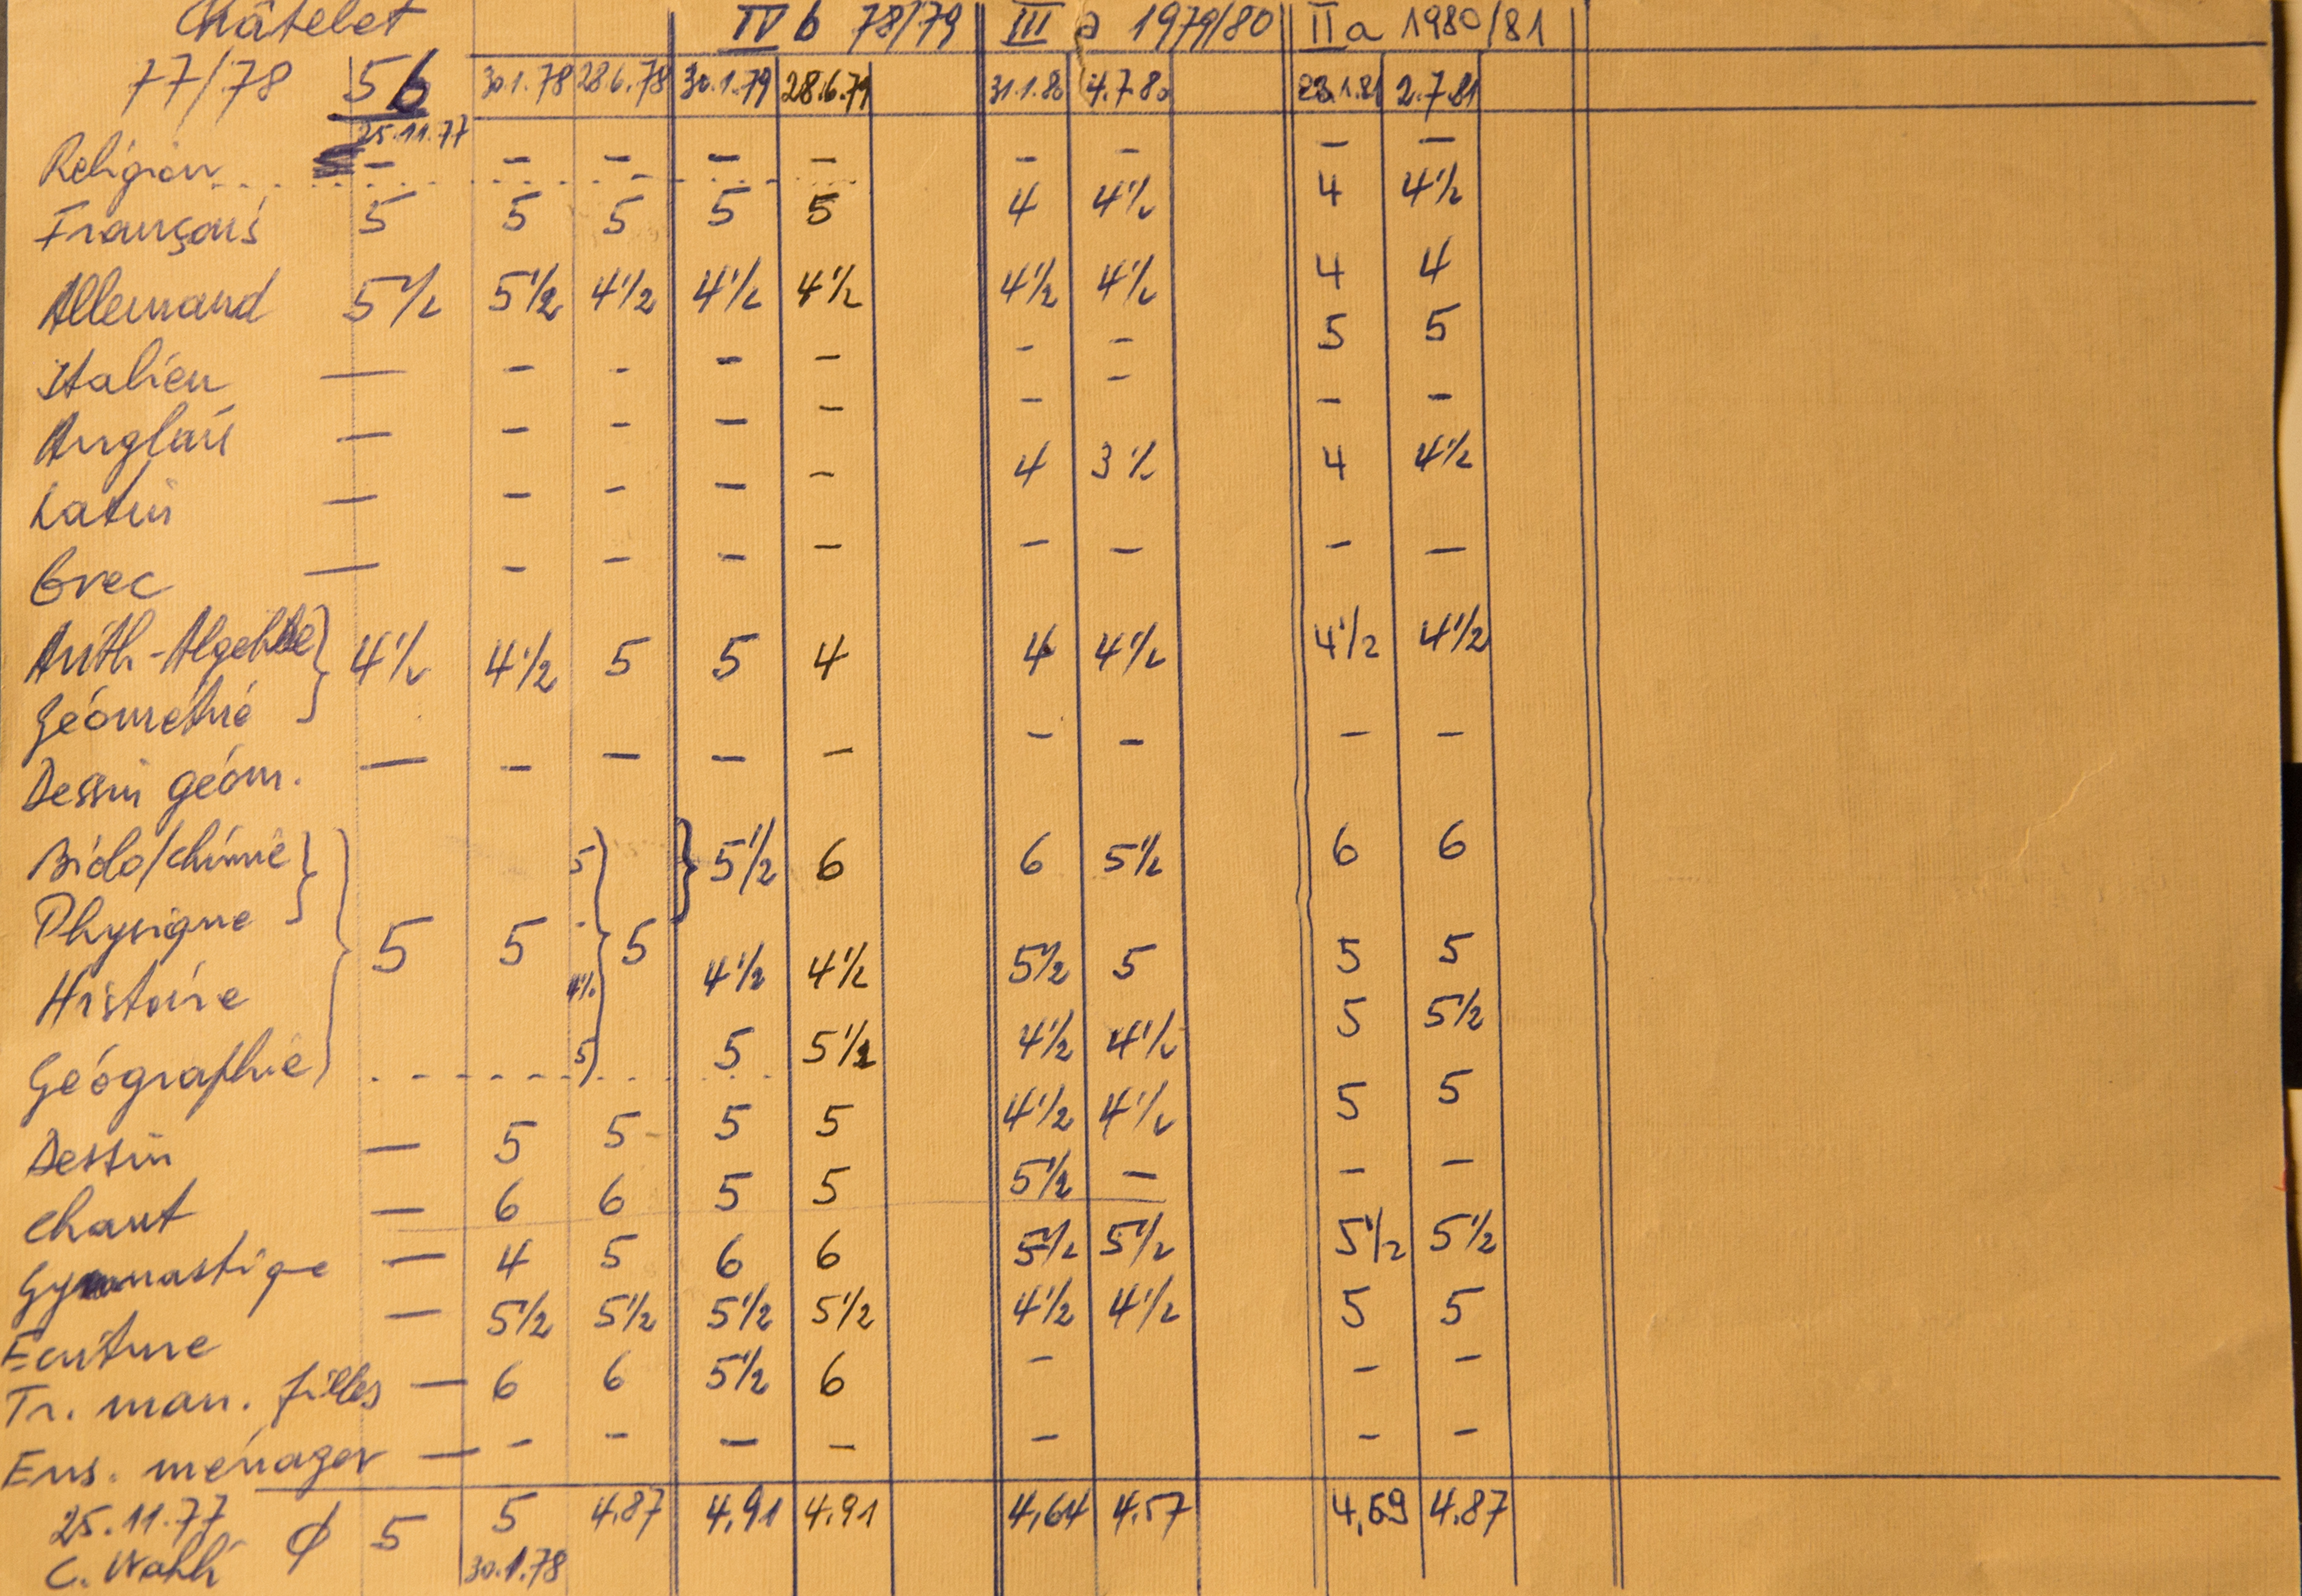 Châtelet IV b 78/79 III a 1979/80 II a 1980/81
77/78 5b 30.1.78 28.6.78 30.1.79 28.6.79 31.1.80 4.7.80 23.1.81 2.7.81
25.11.77
Religion - - - - - - - - -
Français 5 5 5 5 5 4 4½ 4 4½
Allemand 5½ 5½ 4½ 4½ 4½ 4½ 4½ 4 4
Italien — - - - - - - 5 5
Anglais — - - - - - - - -
Latin — - - - - 4 3½ 4 4½
Grec — - - - - - - - -
Arith-Algebre } 4½ 4½ 5 5 4 4 4½ 4½ 4½
Géométrie
Dessin géom. — - — - - - - - -
Biolo/chimie } 5 } 5½ 6 6 5½ 6 6
Physique 5 5 - 5
Histoire 4½ 4½ 4½ 5½ 5 5 5
Géographie 5 5 5½ 4½ 4½ 5 5½
Dessin — 5 5 5 5 4½ 4½ 5 5
Chant — 6 6 5 5 5½ — - -
Gymnastique — 4 5 6 6 5½ 5½ 5½ 5½
Ecriture — 5½ 5½ 5½ 5½ 4½ 4½ 5 5
Tr. man. filles — 6 6 5½ 6 - - -
Ens. ménager — - - - - - - -
25.11.77 ϕ 5 5 4.87 4.91 4.91 4,64 4.57 4,69 4.87
C. Wahli 30.1.78